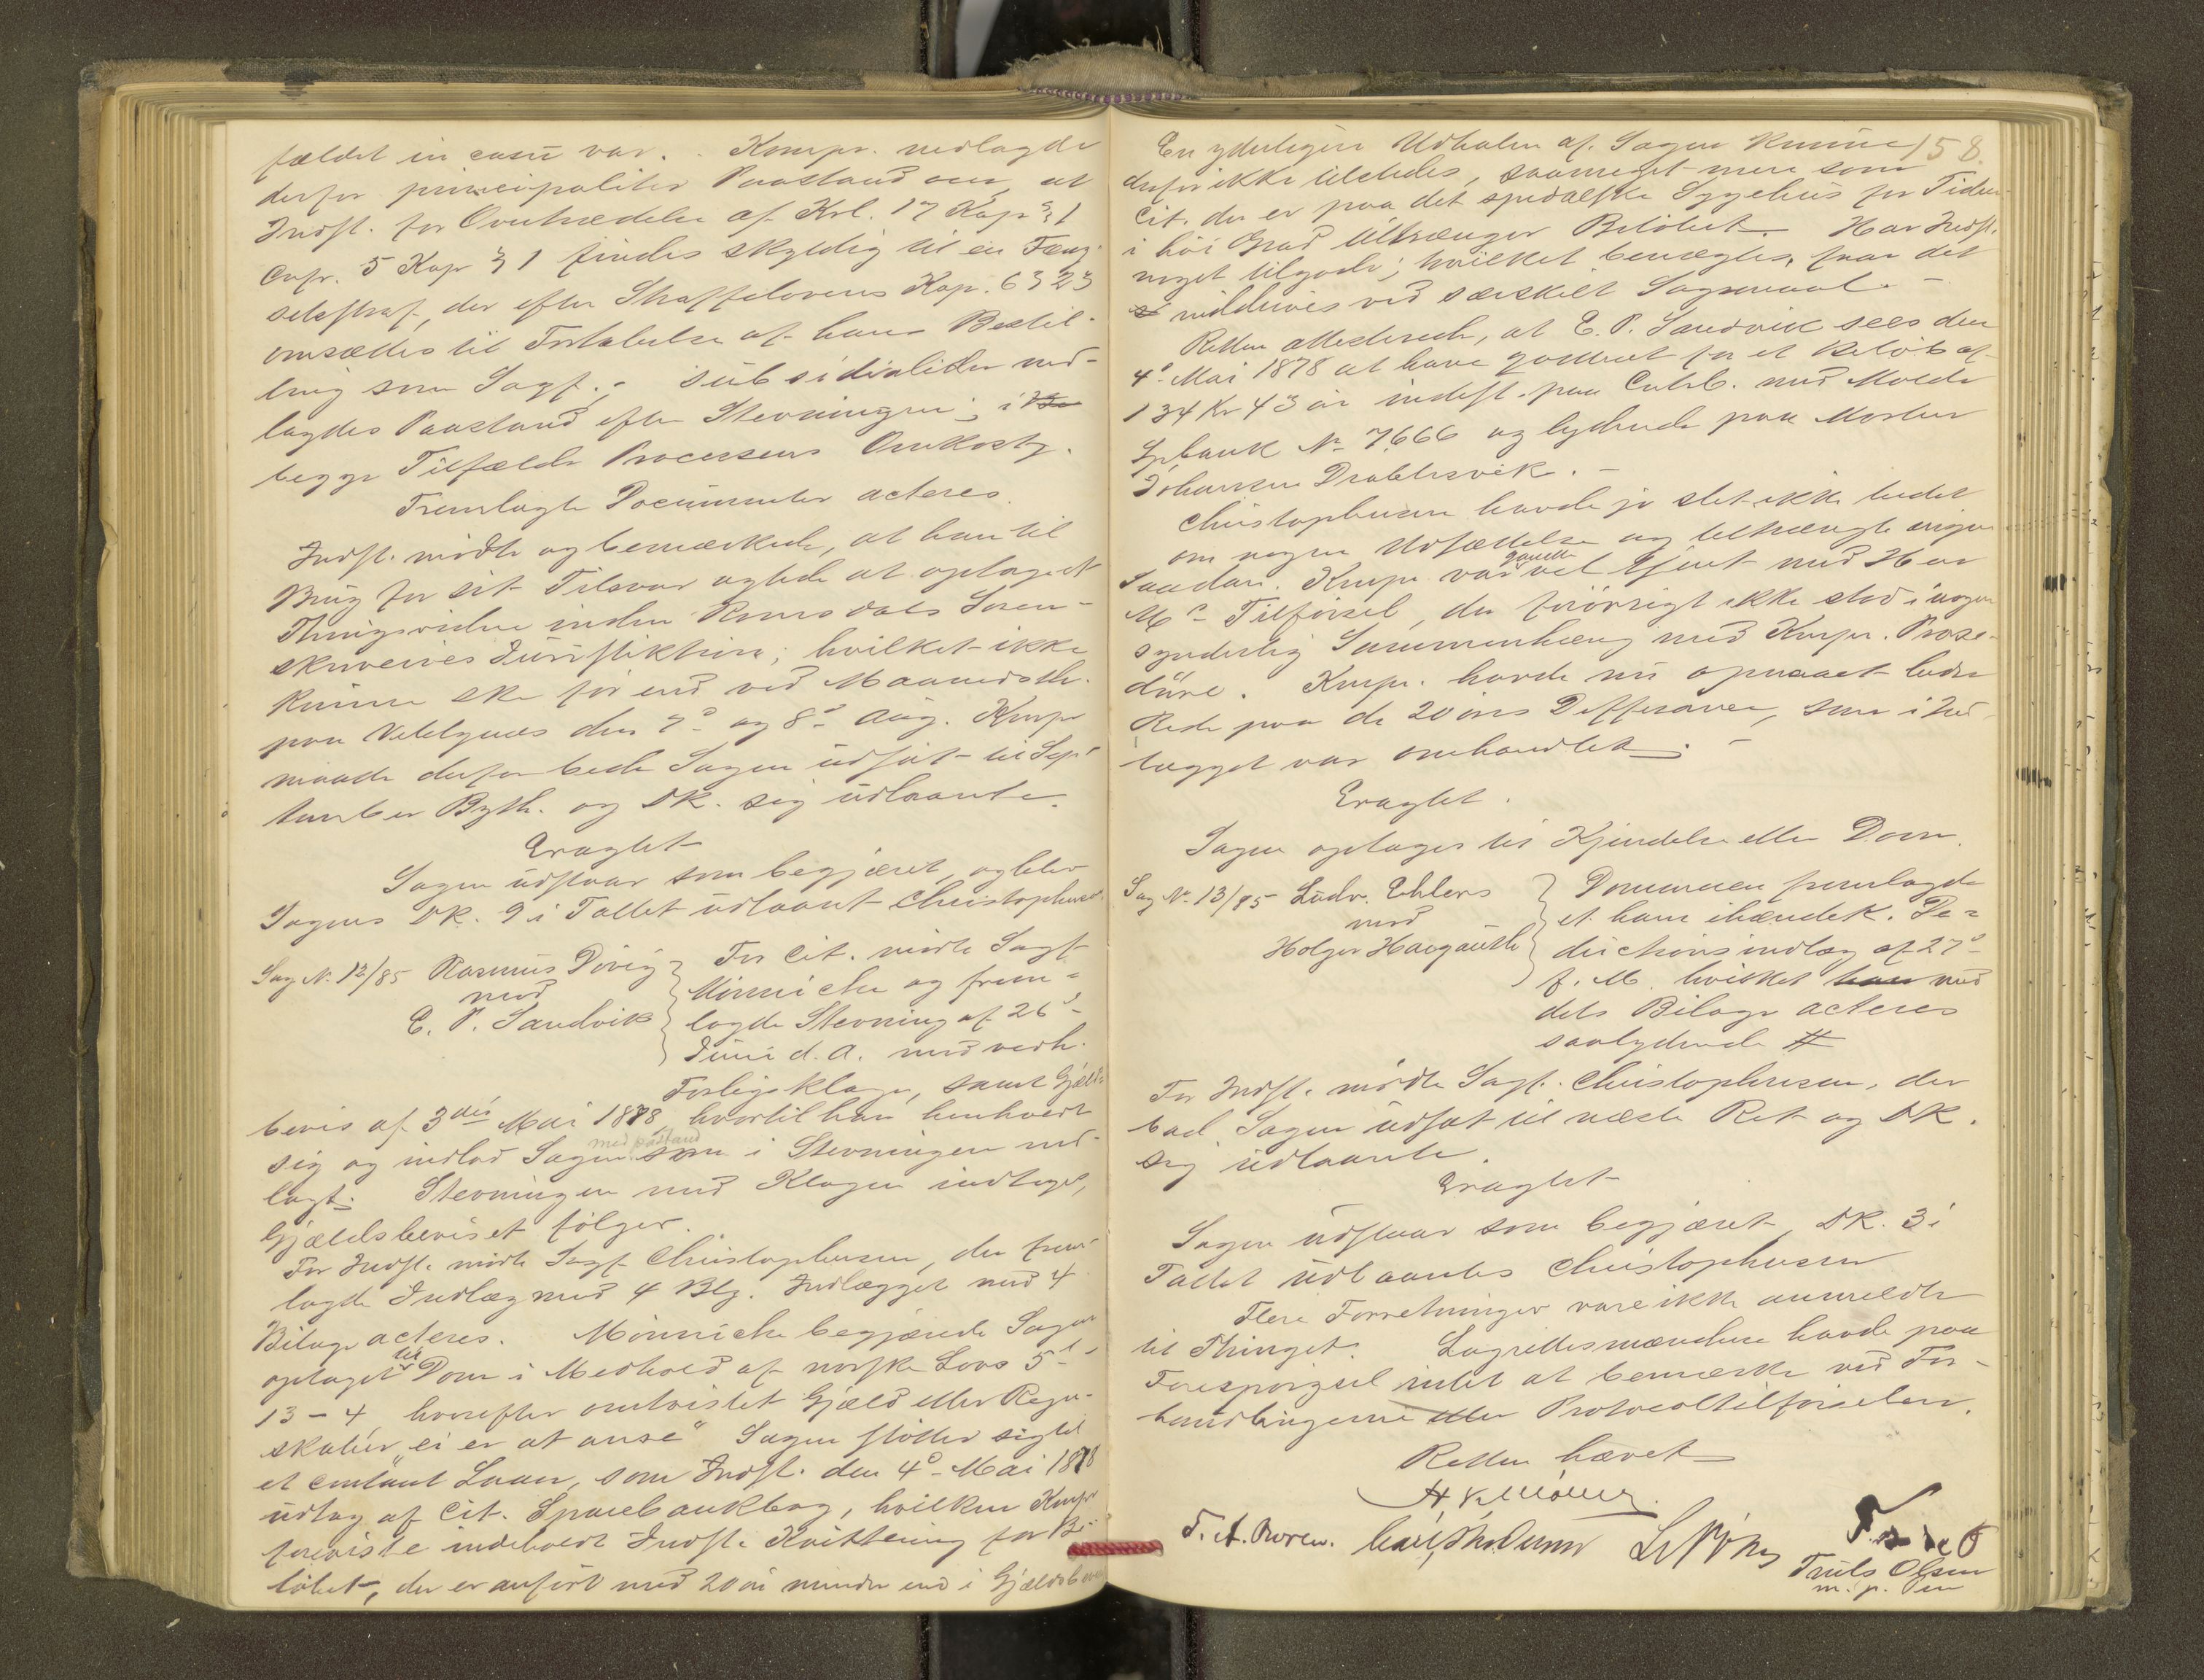 fældet in casu var. . Kompr. nedlagde
derfor principaliter Paastand om, at
Indst. for Overtrædelse af Krl. 17 Kap § 1
Cnfr. 5 Kap § 1 findes skyldig til en Fæng-
selsstraf, der efter Straffelovens Kap. 6 § 23
omsættes til Fortabelse af hans Bestil-
ling som Sagf. - Subsidialiter ned-
lagdes Paastand efter Stevningen; i
begge Tilfælde Processens Omkostg.
Fremlagte Documenter acteres.
Indst. mødte og bemærkede, at han til
Brug for sit Tilsvar agtede at optage et
Thingsvidne inden Romsdals Soren-
skriveries Jurisdiktion; hvilket ikke
kunne ske før end ved Maanedsth.
paa Veblungsnes den 7d og 8d Aug. Kmpr
maatte derfor bede Sagen udsat til Sep-
tember Byth. og DK. sig udlaante.
Eragtet
Sagen udstaar som begjæret, og blev
Sagens DK. 9 i Tallet udlaant Christophersen.
Sag N. 12/85 Rasmus Döving
mod
E. P. Sandvik
For Cit. mödte Sagf
Mönniche og frem-
lagde Stevning af 26d
Juni d. A. med vedh.
Forligsklage, samt Gjælds-
bevis af 3die Mai 1878 hvortil han henholdt
sig og indlod Sagen med påstand som i Stevningen ned-
lagt. Stevningen med Klagen indtages,
Gjældsbeviset følger.
For Indst. mødte Sagf. Christophersen, der frem-
lagde Indlæg med 4 Blg. Indlægget med 4
Bilage acteres. Mönniche begjærede Sagen
optaget til Dom i Medhold af norske Lovs 5-
13-4, hvorefter omtvistet Gjæld eller Regn-
skab "ei er at anse" Sagen støtter sig til
et contant Laan, som Indst. den 4d Mai 1878
udtog af Cit. Sparebankbog, hvilken Kmpr
foreviste indeholdt Indst. Kvittering for Be-
løbet, der er anført med 20 øre mindre end i Gjældsbeviset
158.
En yderligere Udhalen af Sagen kunne
derfor ikke tilstedes, saameget mere som
Cit. der er paa det spedalske Sygehus for Tiden
i høi Grad tiltrænger Beløbet. Har Indst.
noget tilgode; hvilket benægtes, faar det
inddrives ved særskilt Søgsmaal. -
Retten attesterede, at E. P. Sandvik sees den
4d Mai 1878 at have qvitteret for et Beløb af
134 Kr 43 øre indest. paa Cntrb. med Molde
Spbank No 7666 og lydende paa Morten
Johansen Drabløsvik. -
Christophersen havde jo slet ikke bedet
om nogen Udsættelse og tiltrængte ingen
Saadan. Kmpr. var ganske vel tjent med Herr
Ms Tilførsel, der forøvrigt ikke stod i nogen
synderlig Sammenhæng med Kmpr. Proce-
dure. Kmpr. havde nu opnaaet bedre
Rede paa de 20 øres Differance, som i Ind-
lægget var omhandlet. -
Eragtet.
Sagen optages til Kjendelse eller Dom.
Sag No 13/85 Ludv. Ehlers
mod
Holger Haugauth
Dommeren fremlagde
et ham ihændek. De-
ductionsindlæg af 27d
f. M. hvilket med
dets Bilage acteres
saalydende #
For Indst. mödte Sagf. Christophersen, der
bad Sagen udsat til næste Ret og DK.
sig udlaante.
Eragtet
Sagen udstaar som begjæret, DK. 3 i
Tallet udlaantes Christophersen
Flere Forretninger vare ikke anmeldte
til Thinget. Lagrettesmændene havde paa
Forespørgsel intet at bemærke ved For-
handlingerne eller Protocoltilførselen.
Retten hævet
Truls Olsen
m. p. Pen